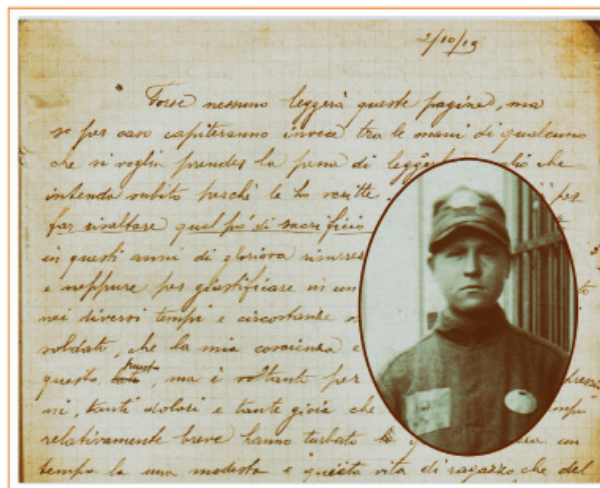 2/10/19
Forse nessuno leggerà queste pagine, ma
se per caso capiteranno invece tra le mani di qualcuno
che si voglia prender la pena di
intenda subito perchè le ho scritte per
far risaltare quel pò di sacrificio
in questi anni di gloriosa
e neppure per giustificare in un
nei diversi tempi e circostanze
soldato, che la mia coscienza
questo, ma è soltanto per
ni, tanti dolori e tante gioie che
relativamente breve hanno turbato un
tempo la mia modesta e quieta vita di ragazzo che del